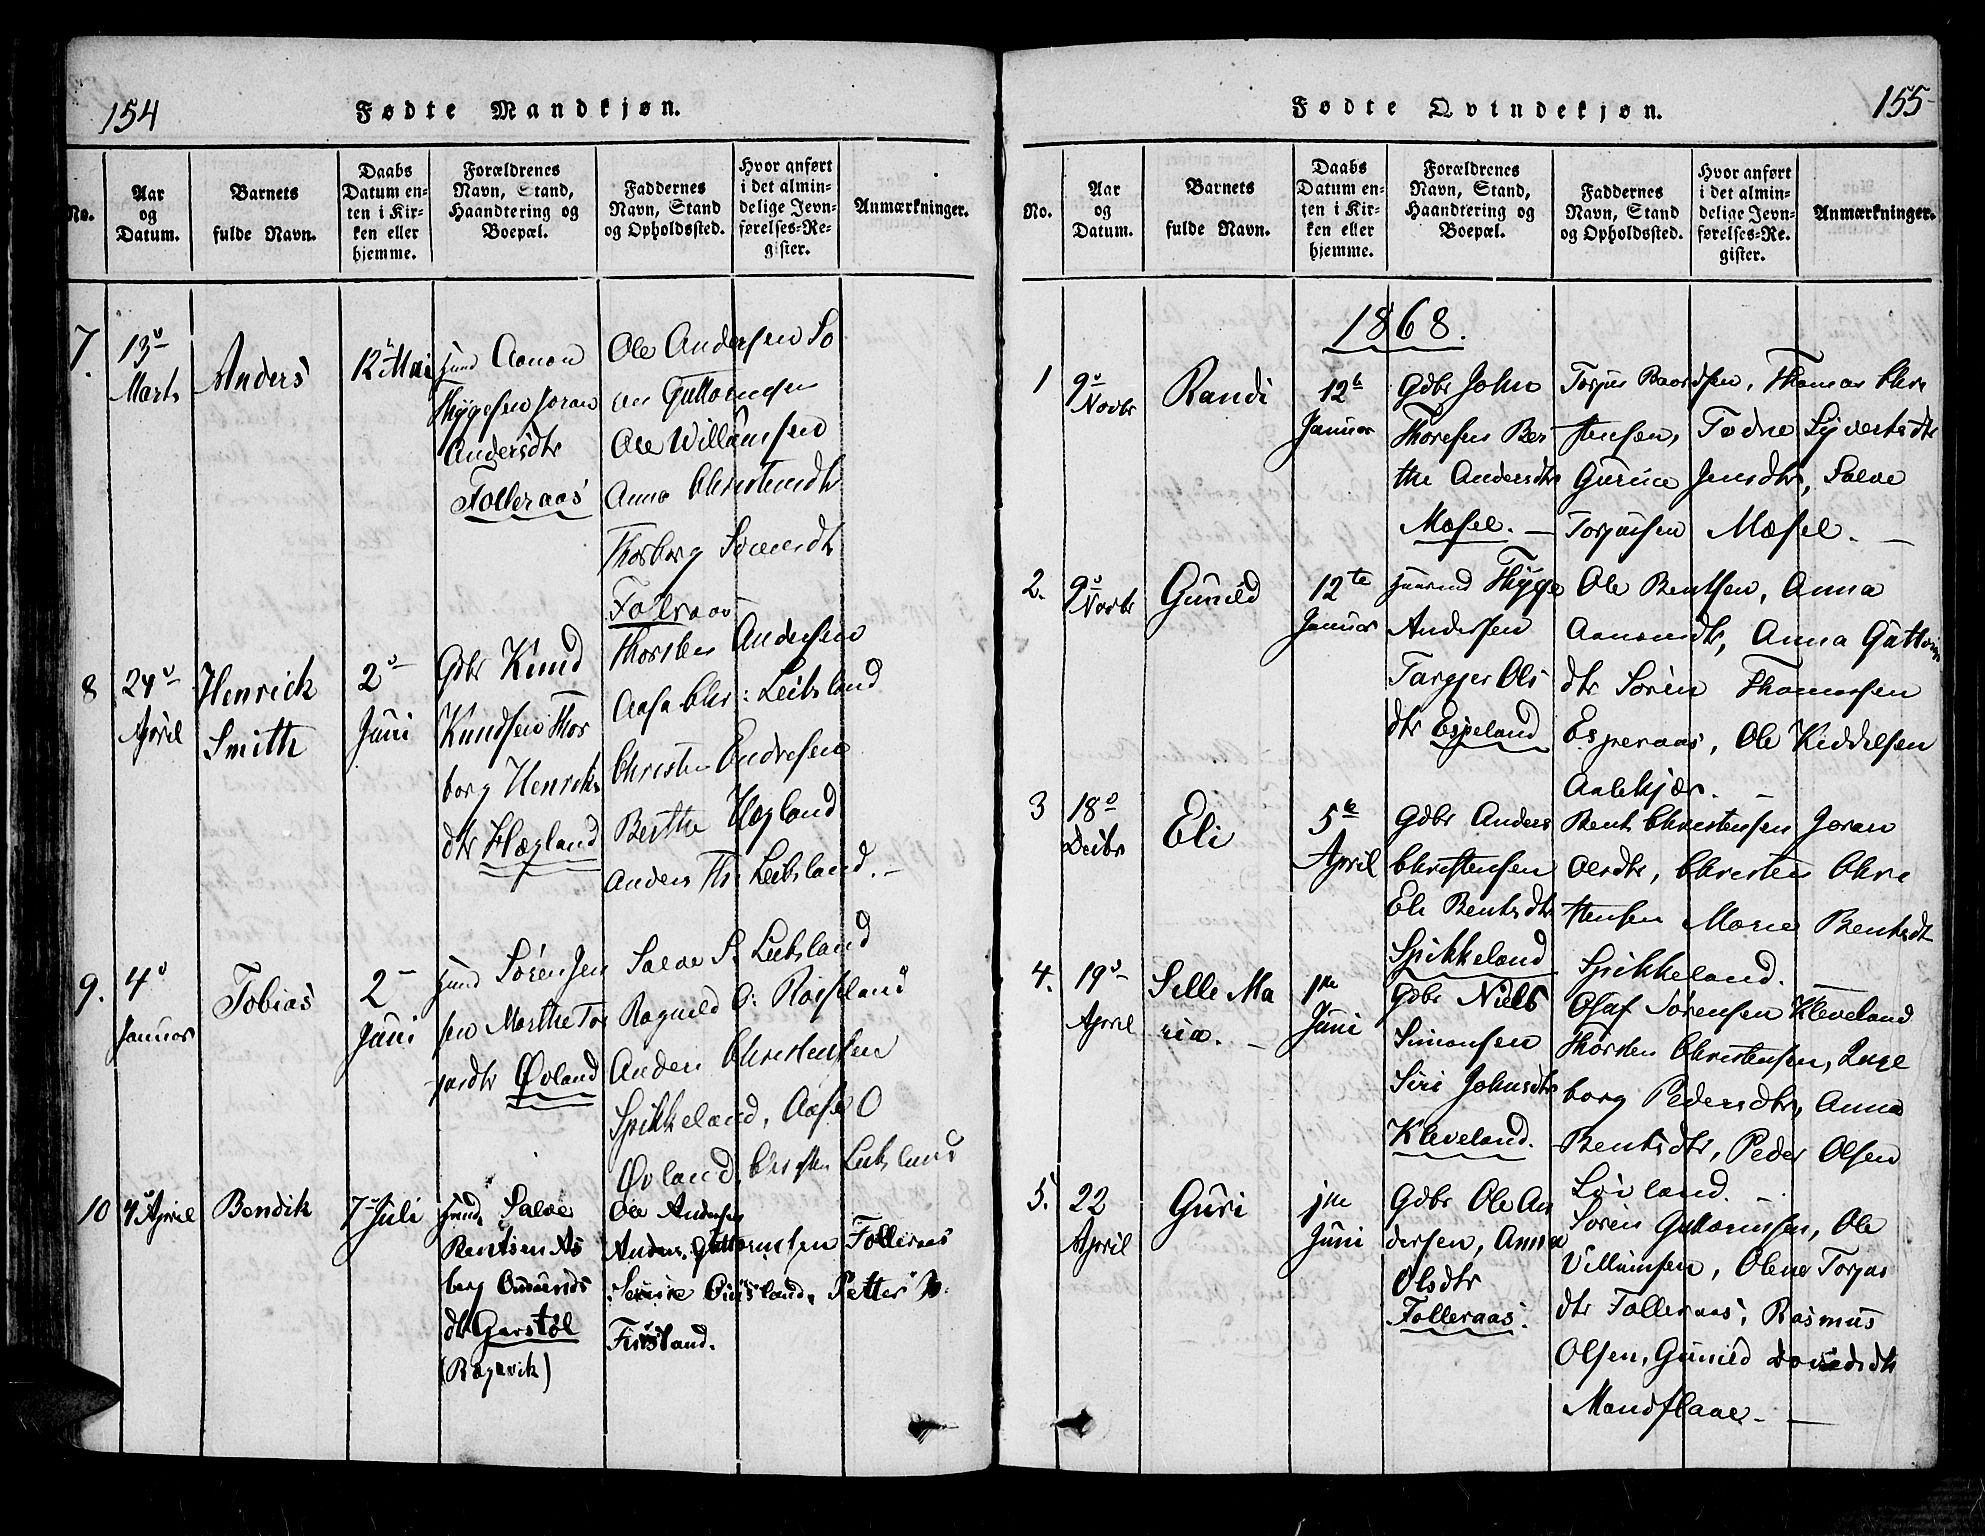 154
Fødte Mandkjøn.
No.
Aar
og
Datum.
Barnets
fulde Navn.
Daabs
Datum en-
ten i Kir-
ken eller
hjemme.
Forældrenes
Navn, Stand,
Haandtering og
Boepæl.
Faddernes
Navn, Stand
og Opholdssted.
Hvor anført
i det almin-
delige Jevn-
førelses-Re-
gister.
Anmærkninger.
7.
13
Marts
Anders
12 Mai
Aanon
Thygesen Joran
Andersdtr
Folleraas
Ole Andersen
Guttormsen
Ole Willumsen
Anna Christensdtr
Thorborg
Follraas
8
24
April
Henrick
Smith
2
Juni
Gdbr Knud
Knudsen Thor
borg Henriks
dtr Hægland
Thorsten Andersen
Aasa Chr: Leibsland
Christen Endresen
Berthe Hægland
Anders Th: Leibsland.
9.
4
Januar
Tobias
2
Juni
Sørensen
Marthe Tor
Øvland
Salve S. Leibsland
Ragnild O: Rosseland
Anders Christensen
Spikkeland, Aase O
Øvland, Christen Leibsland
10
4 April
Bendik
7 Juli
Salve
Bentsen As
berg
dtr Garstøl
(Røgevik)
Ole Andersen
Anders Guttormsen Folleraas
Petter
Finsland.
155
Fødte Qvindekjøn.
No.
Aar
og
Datum.
Barnets
fulde Navn.
Daabs
Datum en-
ten i Kir-
ken eller
hjemme.
Forældrenes
Navn, Stand,
Haandtering og
Boepæl.
Faddernes
Navn, Stand
og Opholdssted.
Hvor anført
i det almin-
delige Jevn-
førelses-Re-
gister.
Anmærkninger.
1868.
1
9
Novbr
Randi
12te
Januar
Gdbr John
Thoresen Ber
the Andersdtr
Mæsel. —
Torjus Baordsen, Thomas Chri
stensen, Todne Syvertsdtr
Gurine Jensdtr, Salve
Torjussen Mæsel. —
2.
9
Novbr
Gunild
12te
Januar
Thygge
Andersen
Targjer Ols
dtr Espeland
Ole Bentsen, Anna
Aanondtr, Anna Guttorms
dtr Søren Thomassen
Esperaas, Ole Kiddelsen
Aalekjær. —
3
18
Decbr
Eli
5te
April
Gdbr Anders
Christensen
Eli Bentsdtr
Spikkeland
Bent Christensen Joran
Olsdtr, Christen Chri
stensen Marie Bentsdtr
Spikkeland. —
4.
19
April
Sille Ma
ria. —
1ste
Juni
Gdbr Niels
Simonsen
Siri Johnsdtr
Kleveland.
Olaf Sørensen Kleveland
Thorsten Christensen, Inge
borg Pedersdtr, Anna
Bentsdtr, Peder Olsen
Loiland. —
5.
22
April
Guri
1ste
Juni
Gdbr Ole An
dersen, Anna
Olsdtr
Folleraas.
Søren Guttormsen, Ole
Villumsen, Olene Torjus
dtr Folleraas, Rasmus
Olsen, Gunild Davidsdtr
Mandflaae. —